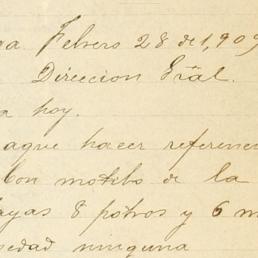 ga. Febrero 28 de 1,909
Direccion Gral.
a hoy.
ague hacer referen
Con motibo de la
ayas 8 potros y 6 m
edad ninguna